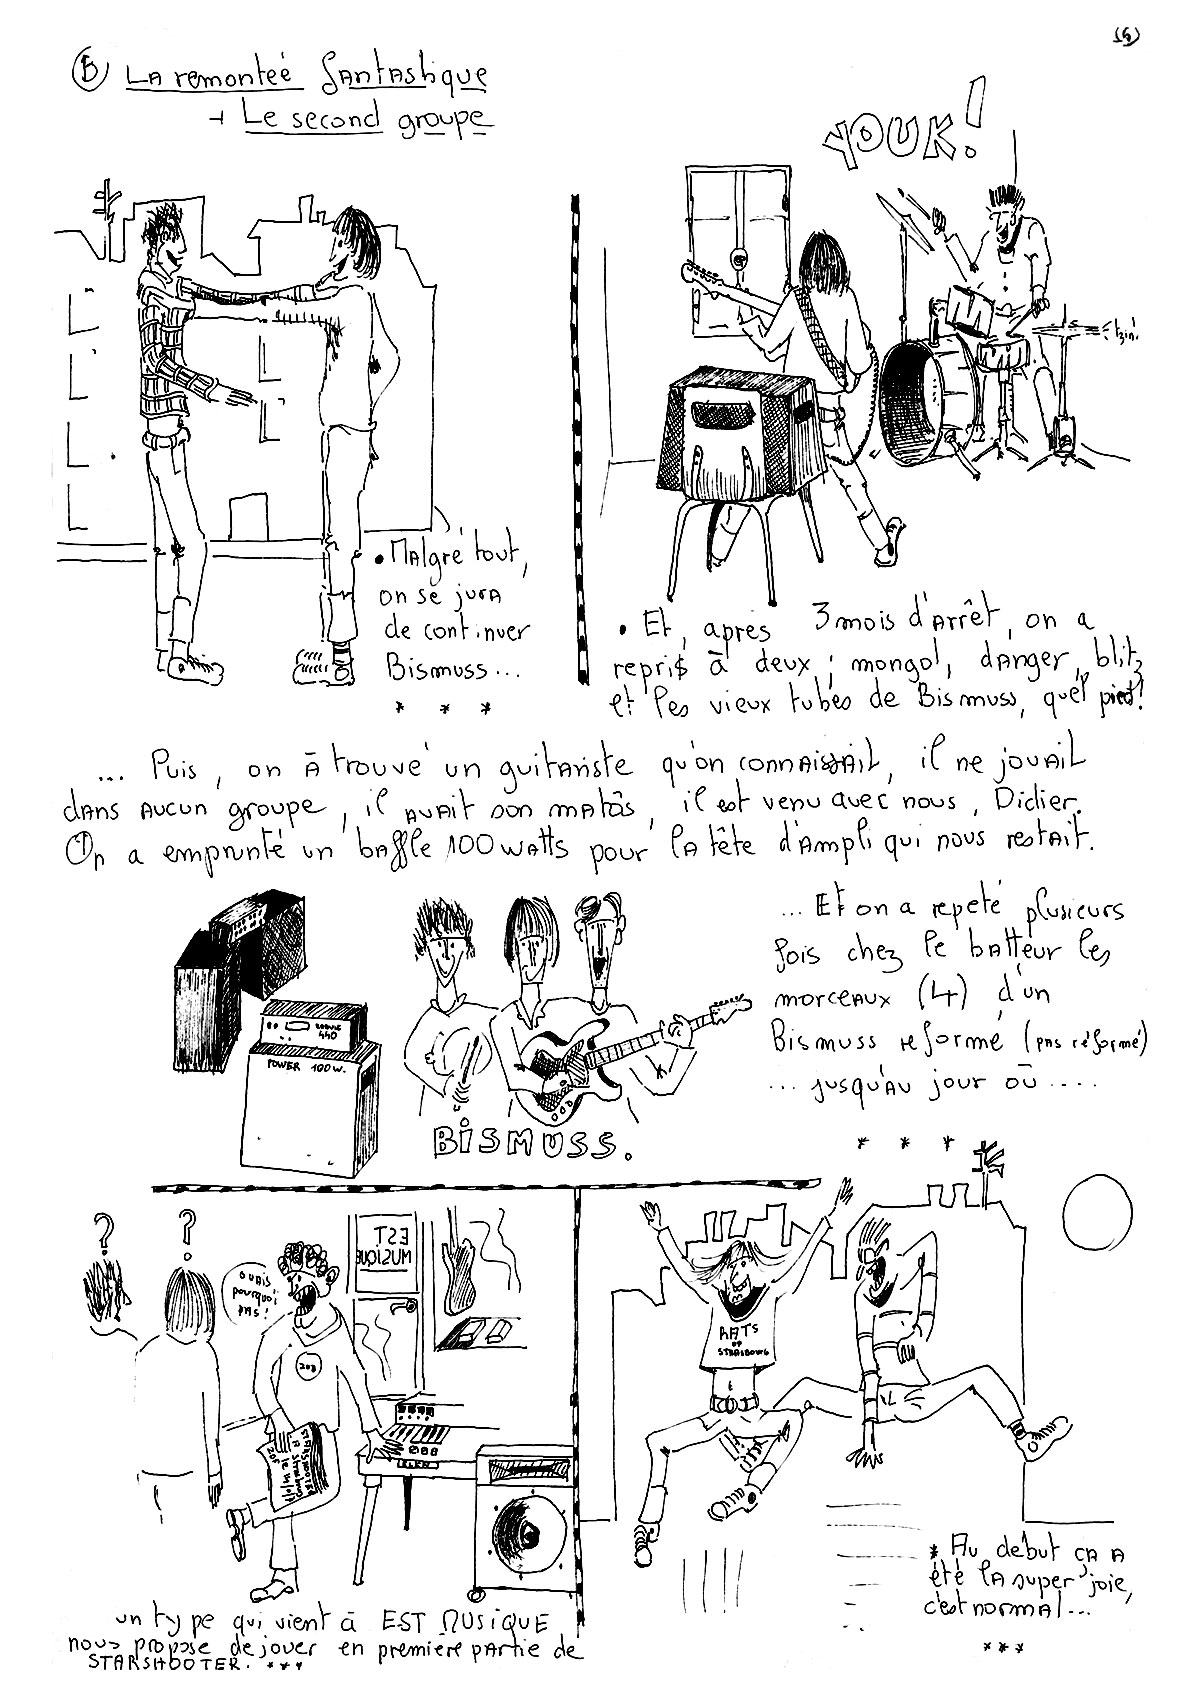 (5)
B LA remontée fantastique
+ Le second groupe
YOUK!
tzin!
• Malgré tout,
on se jura
de continuer
Bismuss...
* * *
• Et, après 3 mois d'arrêt, on a
repris à deux ; mongol, danger, blitz
et les vieux tubes de Bismuss, quel pied!
... Puis, on à trouvé un guitariste qu'on connaissait, il ne jouait
dans aucun groupe, il avait son matos, il est venu avec nous, Didier.
On a emprunté un baffle 100 watts pour la tête d'ampli qui nous restait.
440
POWER 100W.
BiSMUSS.
... Et on a repeté plusieurs
fois chez le batteur les
morceaux (4) d'un
Bismuss reformé (pas réformé)
... jusqu'au jour où ....
* * *
? ?
ouais!
pourquoi
pas!
EST
MUSIQUE
203
STARSHOOTER
A Strasbourg
ELKA
RATS
OF
STRASBOURG
un type qui vient à EST MUSIQUE
nous propose de jouer en première partie de
STARSHOOTER. ***
* Au début ça a
été la super joie,
c'est normal...
***